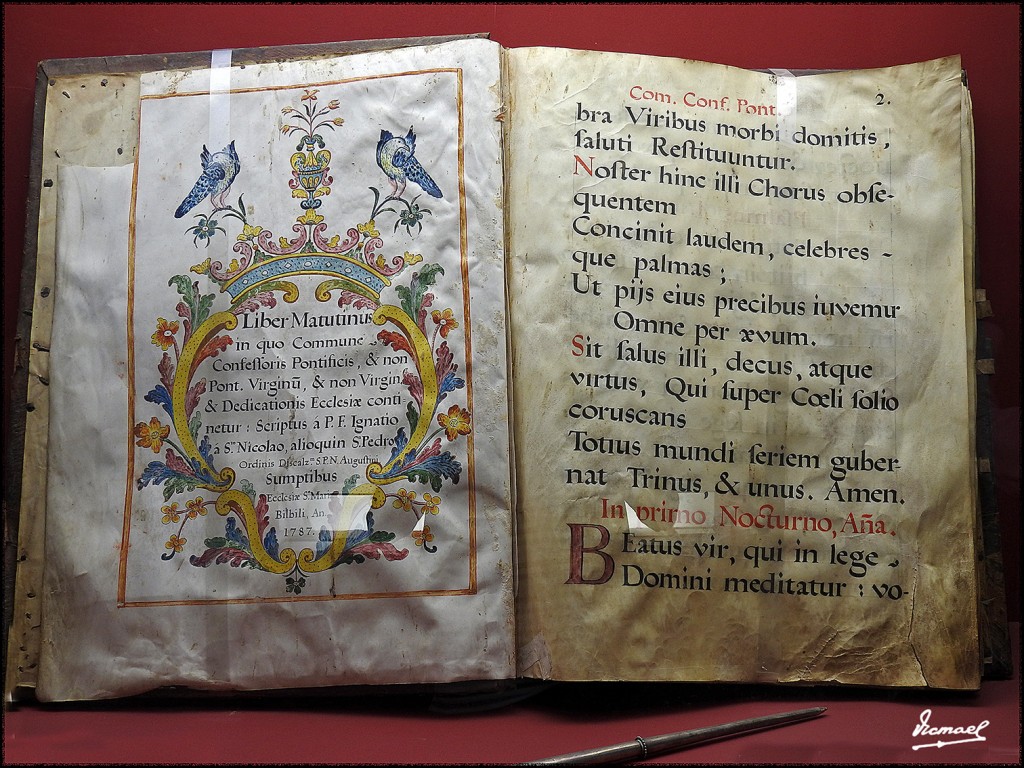 Liber Matutinus
in quo Commune
Confessoris Pontificis, & non
Pont. Virginū, & non Virgin.
& Dedicationis Ecclesiæ conti-
netur: Scriptus á P. F. Ignatio
á S.ᵗᵒ Nicolao, alioquin S.ⁿ Pedro
Ordinis Discalz.ᵐ S.P.N. Augustini
Sumptibus
Ecclesiæ S.ᵗᵃ Mari
Bilbili, An.
1787.
Com. Conf. Pont. 2.
bra Viribus morbi domitis,
ſaluti Reſtituuntur.
Noſter hinc illi Chorus obſe-
quentem
Concinit laudem, celebres-
que palmas;
Ut pijs eius precibus iuvemur
Omne per ævum.
Sit ſalus illi, decus, atque
virtus, Qui ſuper Cœli ſolio
coruscans
Totius mundi ſeriem guber-
nat Trinus, & unus. Amen.
In primo Nocturno, Aña.
BEatus vir, qui in lege
Domini meditatur: vo-
Vicmael